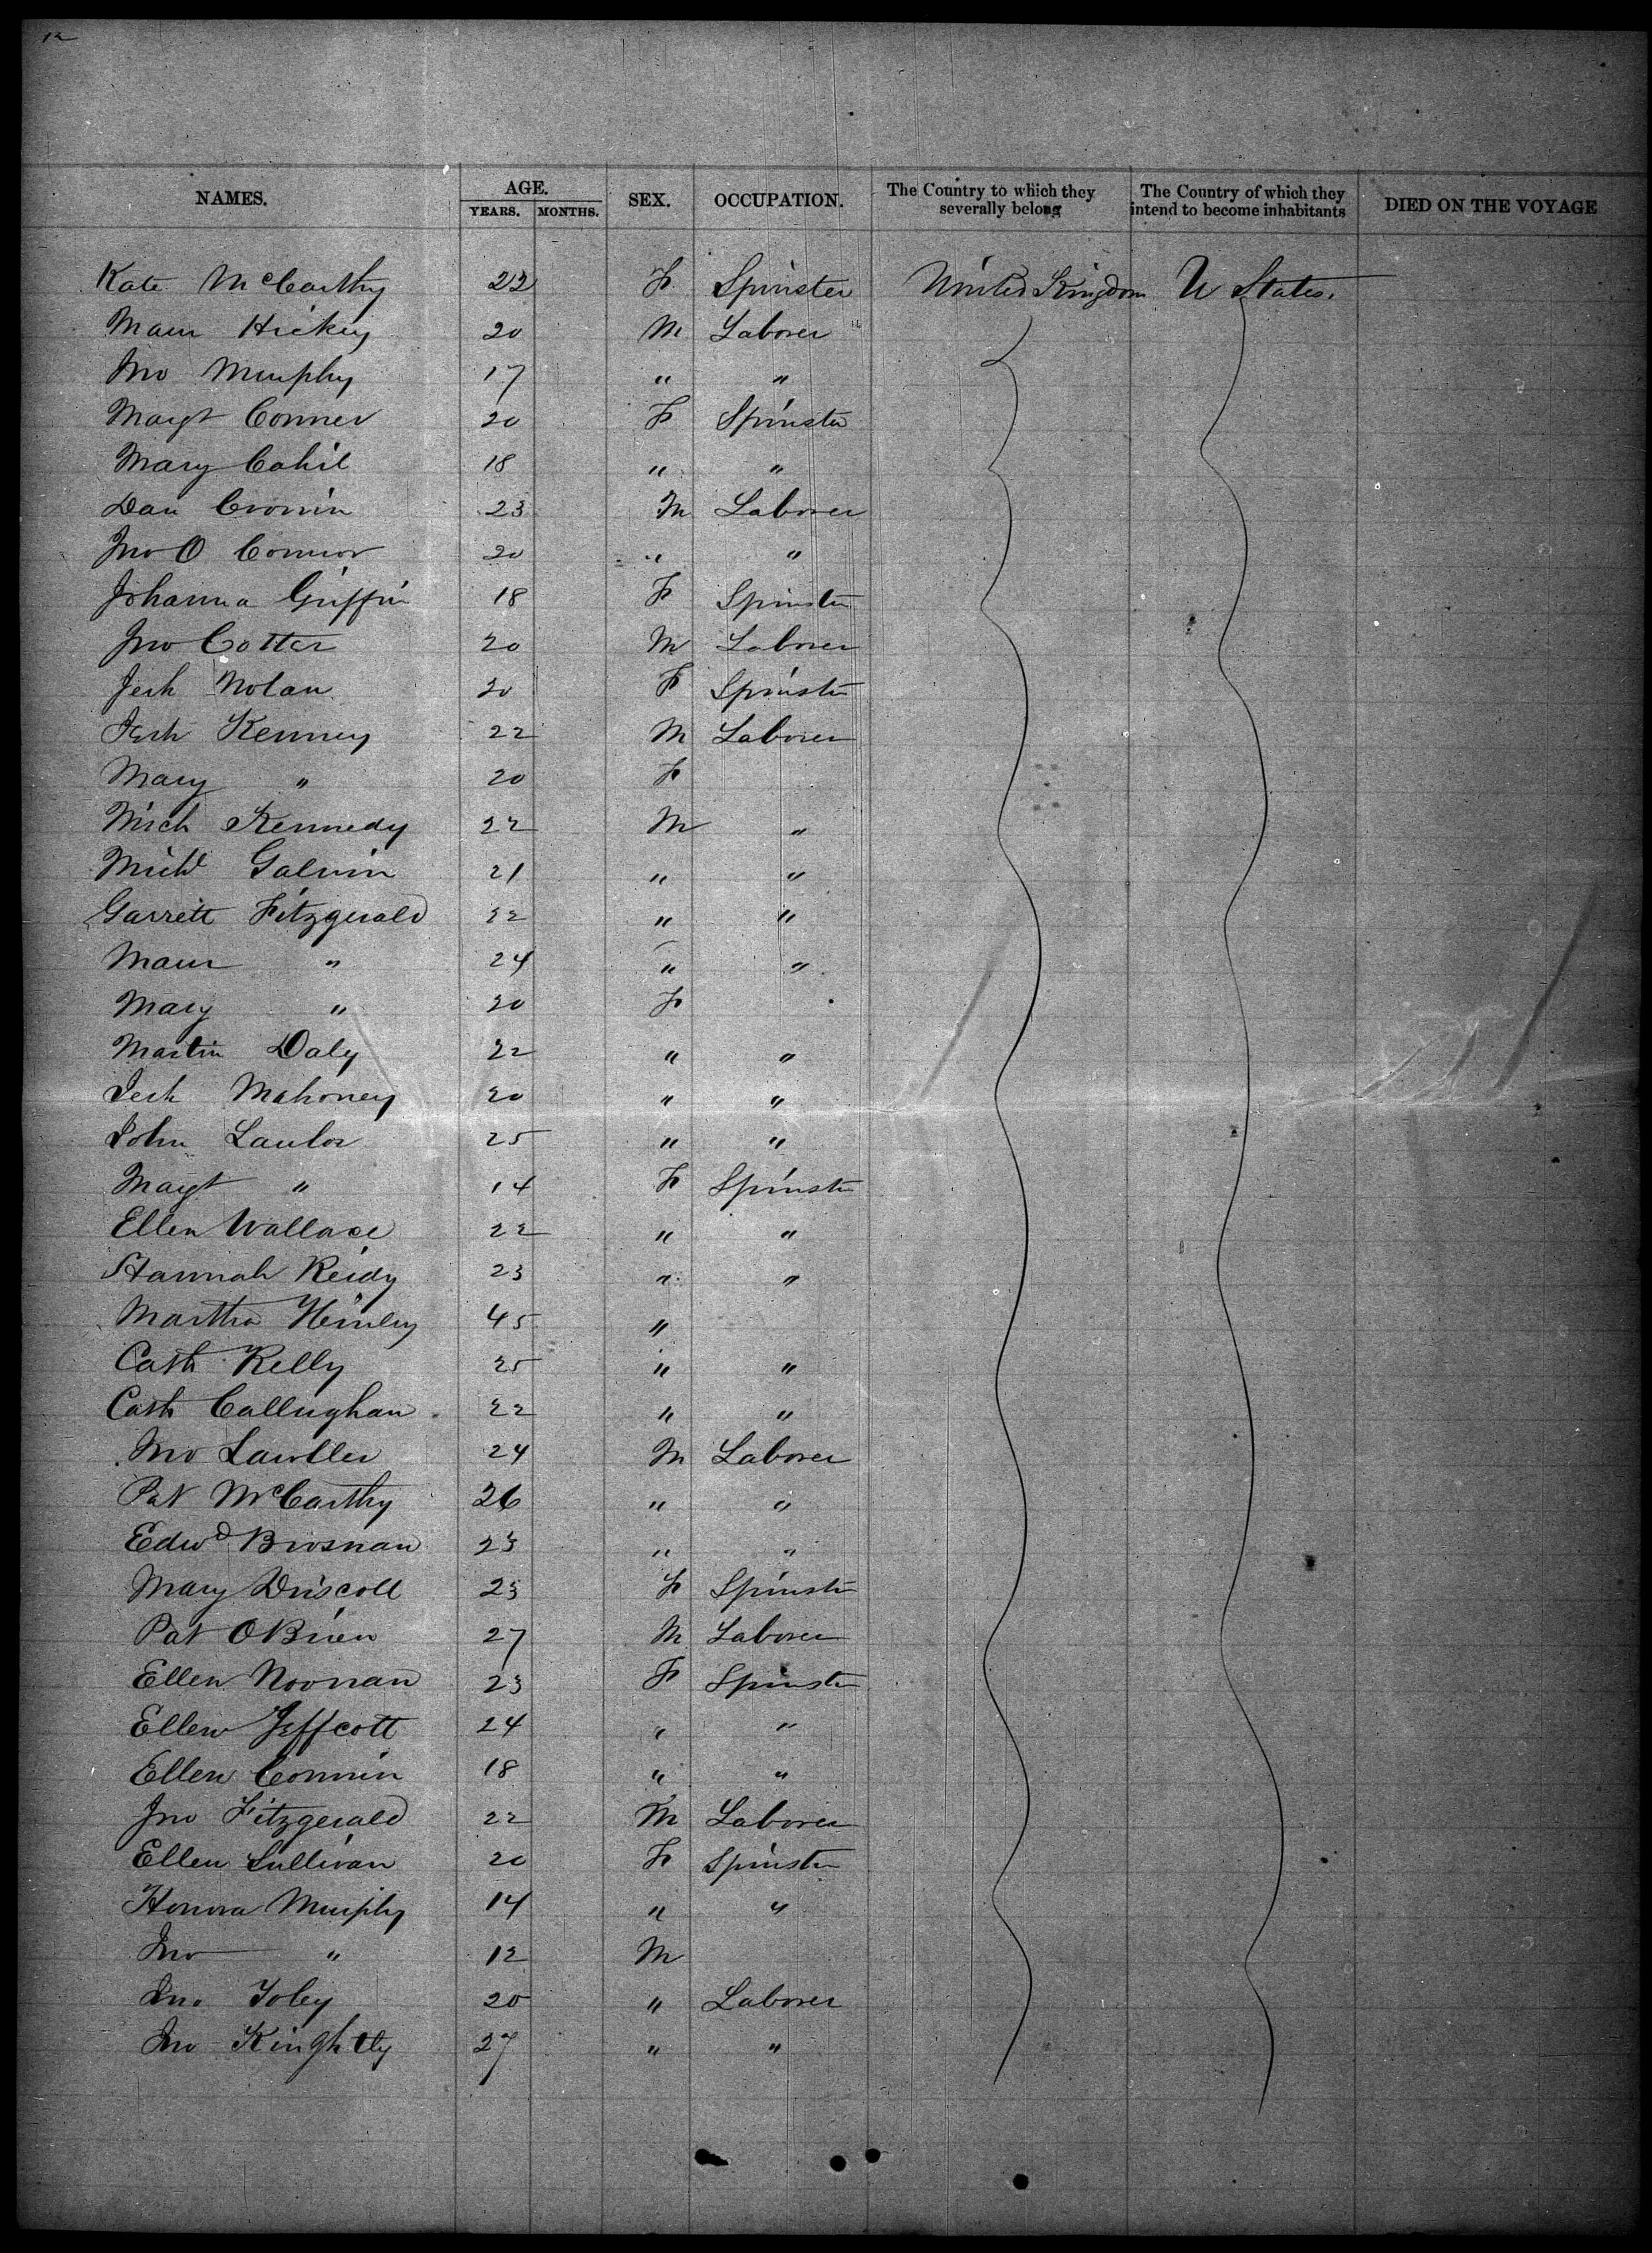 12
NAMES. AGE. SEX. OCCUPATION. The Country to which they severally belong The Country of which they intend to become inhabitants DIED ON THE VOYAGE
YEARS. MONTHS.
Kate McCarthy 22 F Spinster United Kingdom U States.
Maur Hickey 20 M Laborer
Jno Murphy 17 " "
Margt Conner 20 F Spinster
Mary Cahil 18 " "
Dan Cronin 23 M Laborer
Jno O Connor 20 " "
Johanna Griffin 18 F Spinster
Jno Cotter 20 M Laborer
Jerh Nolan 20 F Spinster
Jerh Kenney 22 M Laborer
Mary " 20 F
Mich Kennedy 22 M "
Michl Galvin 21 " "
Garrett Fitzgerald 22 " "
Maur " 24 " "
Mary " 20 F
Martin Daly 22 " "
Jerh Mahoney 20 " "
John Lawlor 25 " "
Margt " 14 F Spinster
Ellen Wallace 22 " "
Hannah Reidy 23 " "
Martha 45 "
Cath Kelly 25 " "
Cath Callughan 22 " "
Jno Lawller 24 M Laborer
Pat McCarthy 26 " "
Edwd Brosnan 23 " "
Mary Driscoll 23 F Spinster
Pat OBrien 27 M Laborer
Ellen Noonan 23 F Spinster
Ellen Jeffcott 24 " "
Ellen Connin 18 " "
Jno Fitzgerald 22 M Laborer
Ellen Sullivan 20 F Spinster
Honora Murphy 14 " "
Jno " 12 M
Jno Foley 20 " Laborer
Jno Kinghtly 27 " "